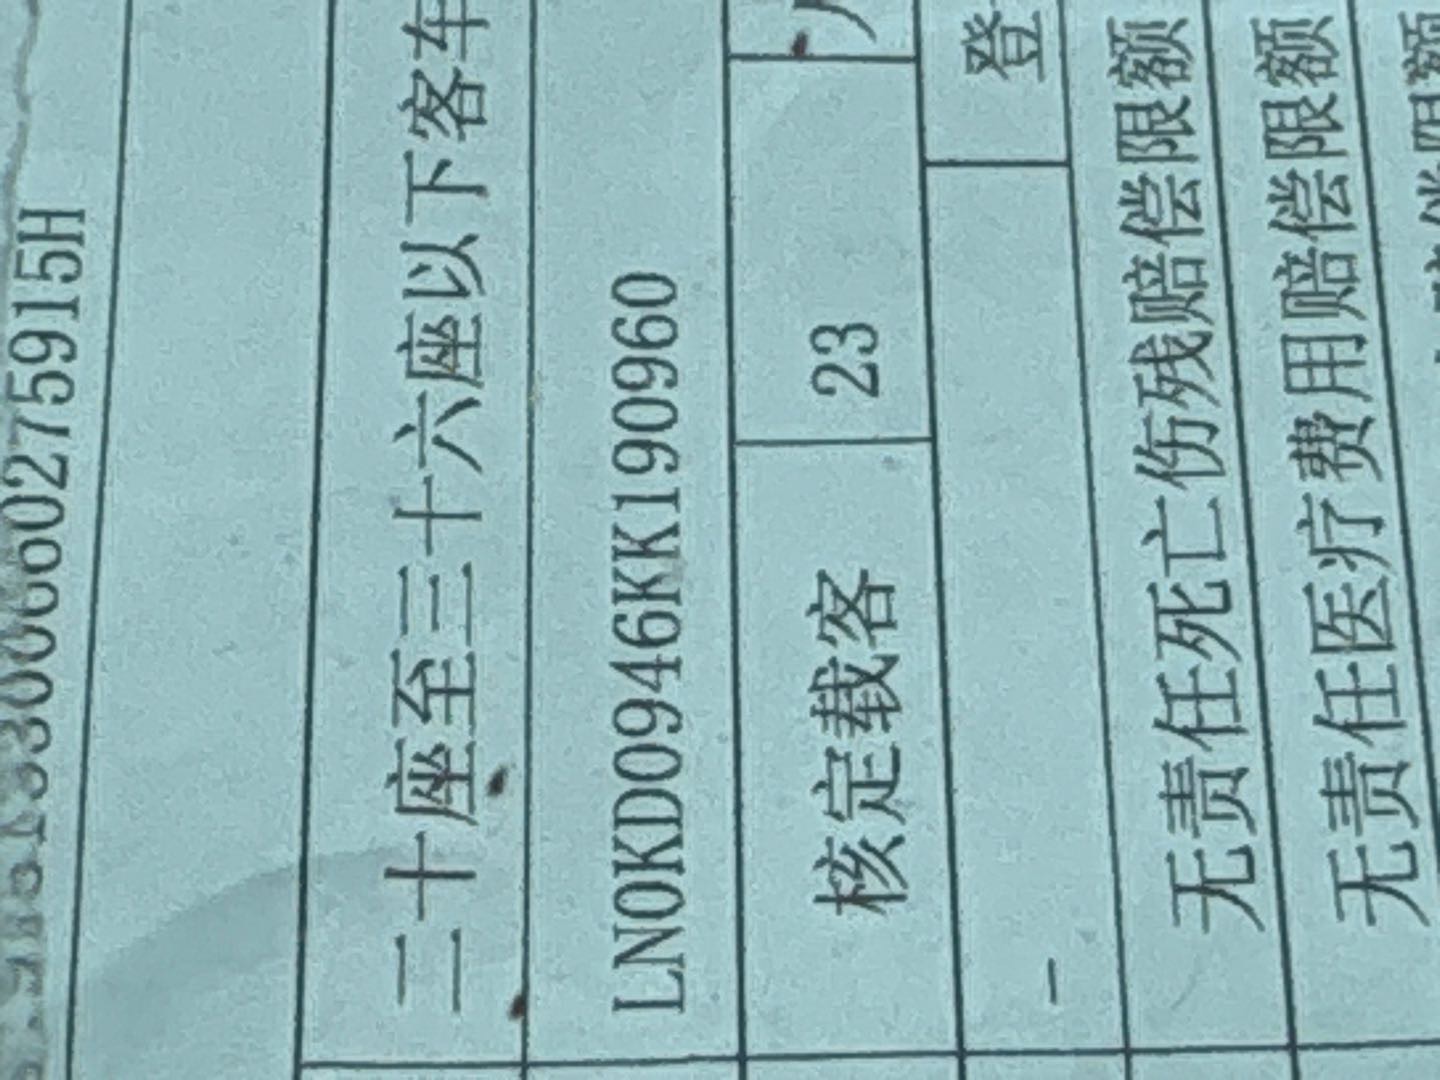 006602775915H
二十座至三十六座以下客车
LN0KD0946KK190960
核定载客 23
– 登
无责任死亡伤残赔偿限额
无责任医疗费用赔偿限额